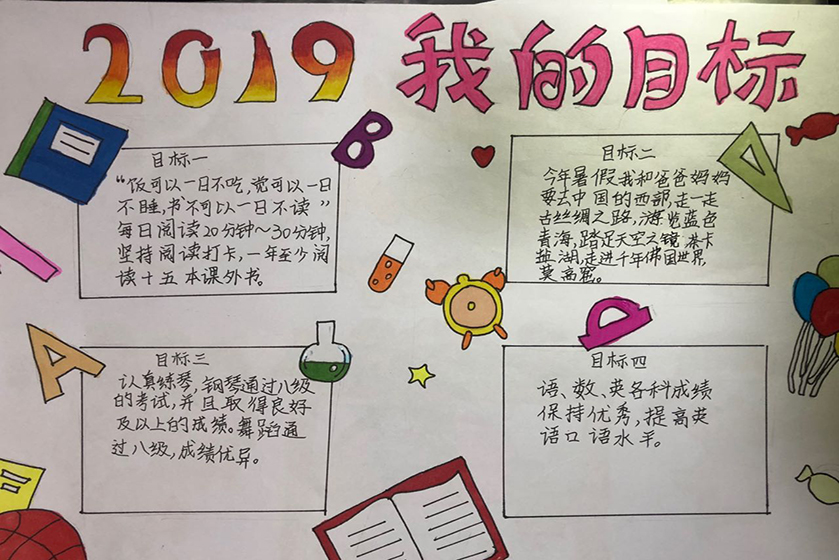 2019 我的目标
目标一
“饭可以一日不吃,觉可以一日
不睡,书不可以一日不读”
每日阅读20分钟~30分钟,
坚持阅读打卡,一年至少阅
读十五本课外书。
B
目标二
今年暑假我和爸爸妈妈
要去中国的西部,走一走
古丝绸之路,游览蓝色
青海,踏足天空之镜 茶卡
盐湖,走进千年佛国世界
莫高窟。
A
目标三
认真练琴,钢琴通过八级
的考试,并且取得良好
及以上的成绩。舞蹈通
过八级,成绩优异。
目标四
语、数、英各科成绩
保持优秀,提高英
语口语水平。